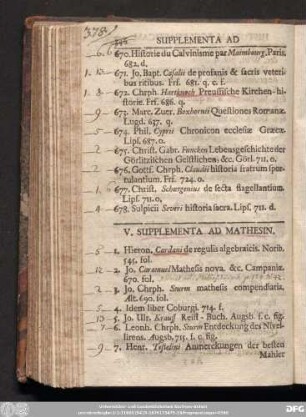 378.
SUPPLEMENTA AD
670. Historie du Calvinisme par Maimbourg, Paris.
682. d.
671. Jo, Bapt. Casalii de profanis & sacris veteri-
bus ritibus. Frf. 681. q. c. f.
672. Chrph. Hartknoch Preussische Kirchen-hi-
storie. Frf. 686. q.
673. Marc. Zuer. Boxhornii Quæstiones Romanæ.
Lugd. 637. q.
674. Phil. Cyprii Chronicon ecclesiæ Græcæ.
Lips. 687. o.
675. Christ. Gabr. Funckens Lebensgeschichte der
Görlitzischen Geistlichen, &c. Görl. 711. o.
676. Gottf. Chrph. Claudii historia fratrum sper-
tulantium. Frf. 724. o.
677. Christ. Schœtgenius de secta flagellantium.
Lips. 711. o.
678. Sulpicii Severi historia sacra. Lips. 711. d.
V. SUPPLEMENTA AD MATHESIN.
1. Hieron. Cardani de regulis algebraicis. Norib.
545. fol.
2. Jo. Caramuel Mathesis nova. &c. Campaniæ.
670. fol.
3. Jo. Chrph. Sturm mathesis compendiaria,
Alt. 690. fol.
4. Idem liber Coburgi. 714. f.
5. Jo. Ulr. Krausf Reiß-Buch. Augsb. f. c. fig.
6. Leonh. Chrph. Sturm Entdeckung des Nivel-
lirens. Augsb. 715. f. c. fig.
7. Henr. Testelini Anmerckungen der besten
Mahler